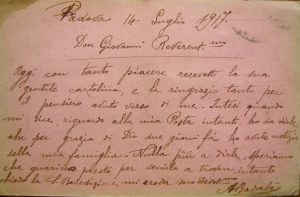 Padova 14 Luglio 1917.
Don Giovanni Reverent.mo
Oggi con tanto piacere recevetti la sua
gentile cartolina, e la ringrazio tanto per
il pensiero aduto verso di me. Intesi quando
mi dice riguardo alla mia Posta intanto ho da dirle
che per grazia di Dio due giorni fà, ho aduto notizie
della mia famiglia. Nulla più a dirle, speriamo
che guarirò presto per venirla a trovare, intanto
chiedo la S. Benedizi e mi creda suo